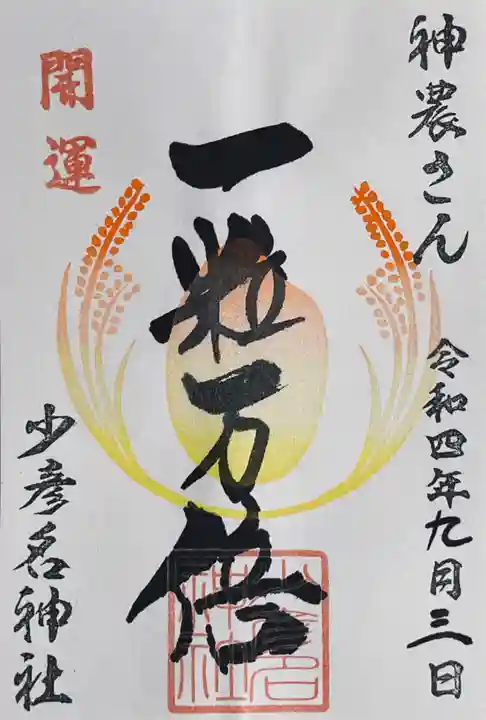 神農さん
令和四年九月三日
一粒万倍
開運
少彦名神社
少彦名
神社